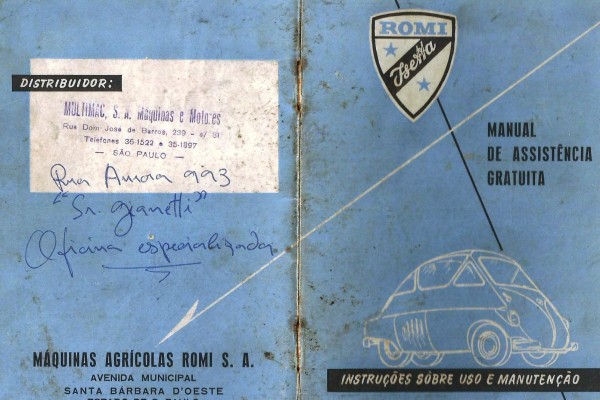 DISTRIBUIDOR:
MULTIMAC, S. A. Máquinas e Motores
Rua Dom José de Barros, 239 - s/ 31
Telefones 36-1522 e 35-1897
— SÃO PAULO —
Rua Aurora 993
"Sr. Gianetti"
Oficina especializada
MÁQUINAS AGRÍCOLAS ROMI S. A.
AVENIDA MUNICIPAL
SANTA BÁRBARA D'OESTE
ESTADO DE S. PAULO
ROMI
Isetta
MANUAL
DE ASSISTÊNCIA
GRATUITA
INSTRUÇÕES SÔBRE USO E MANUTENÇÃO